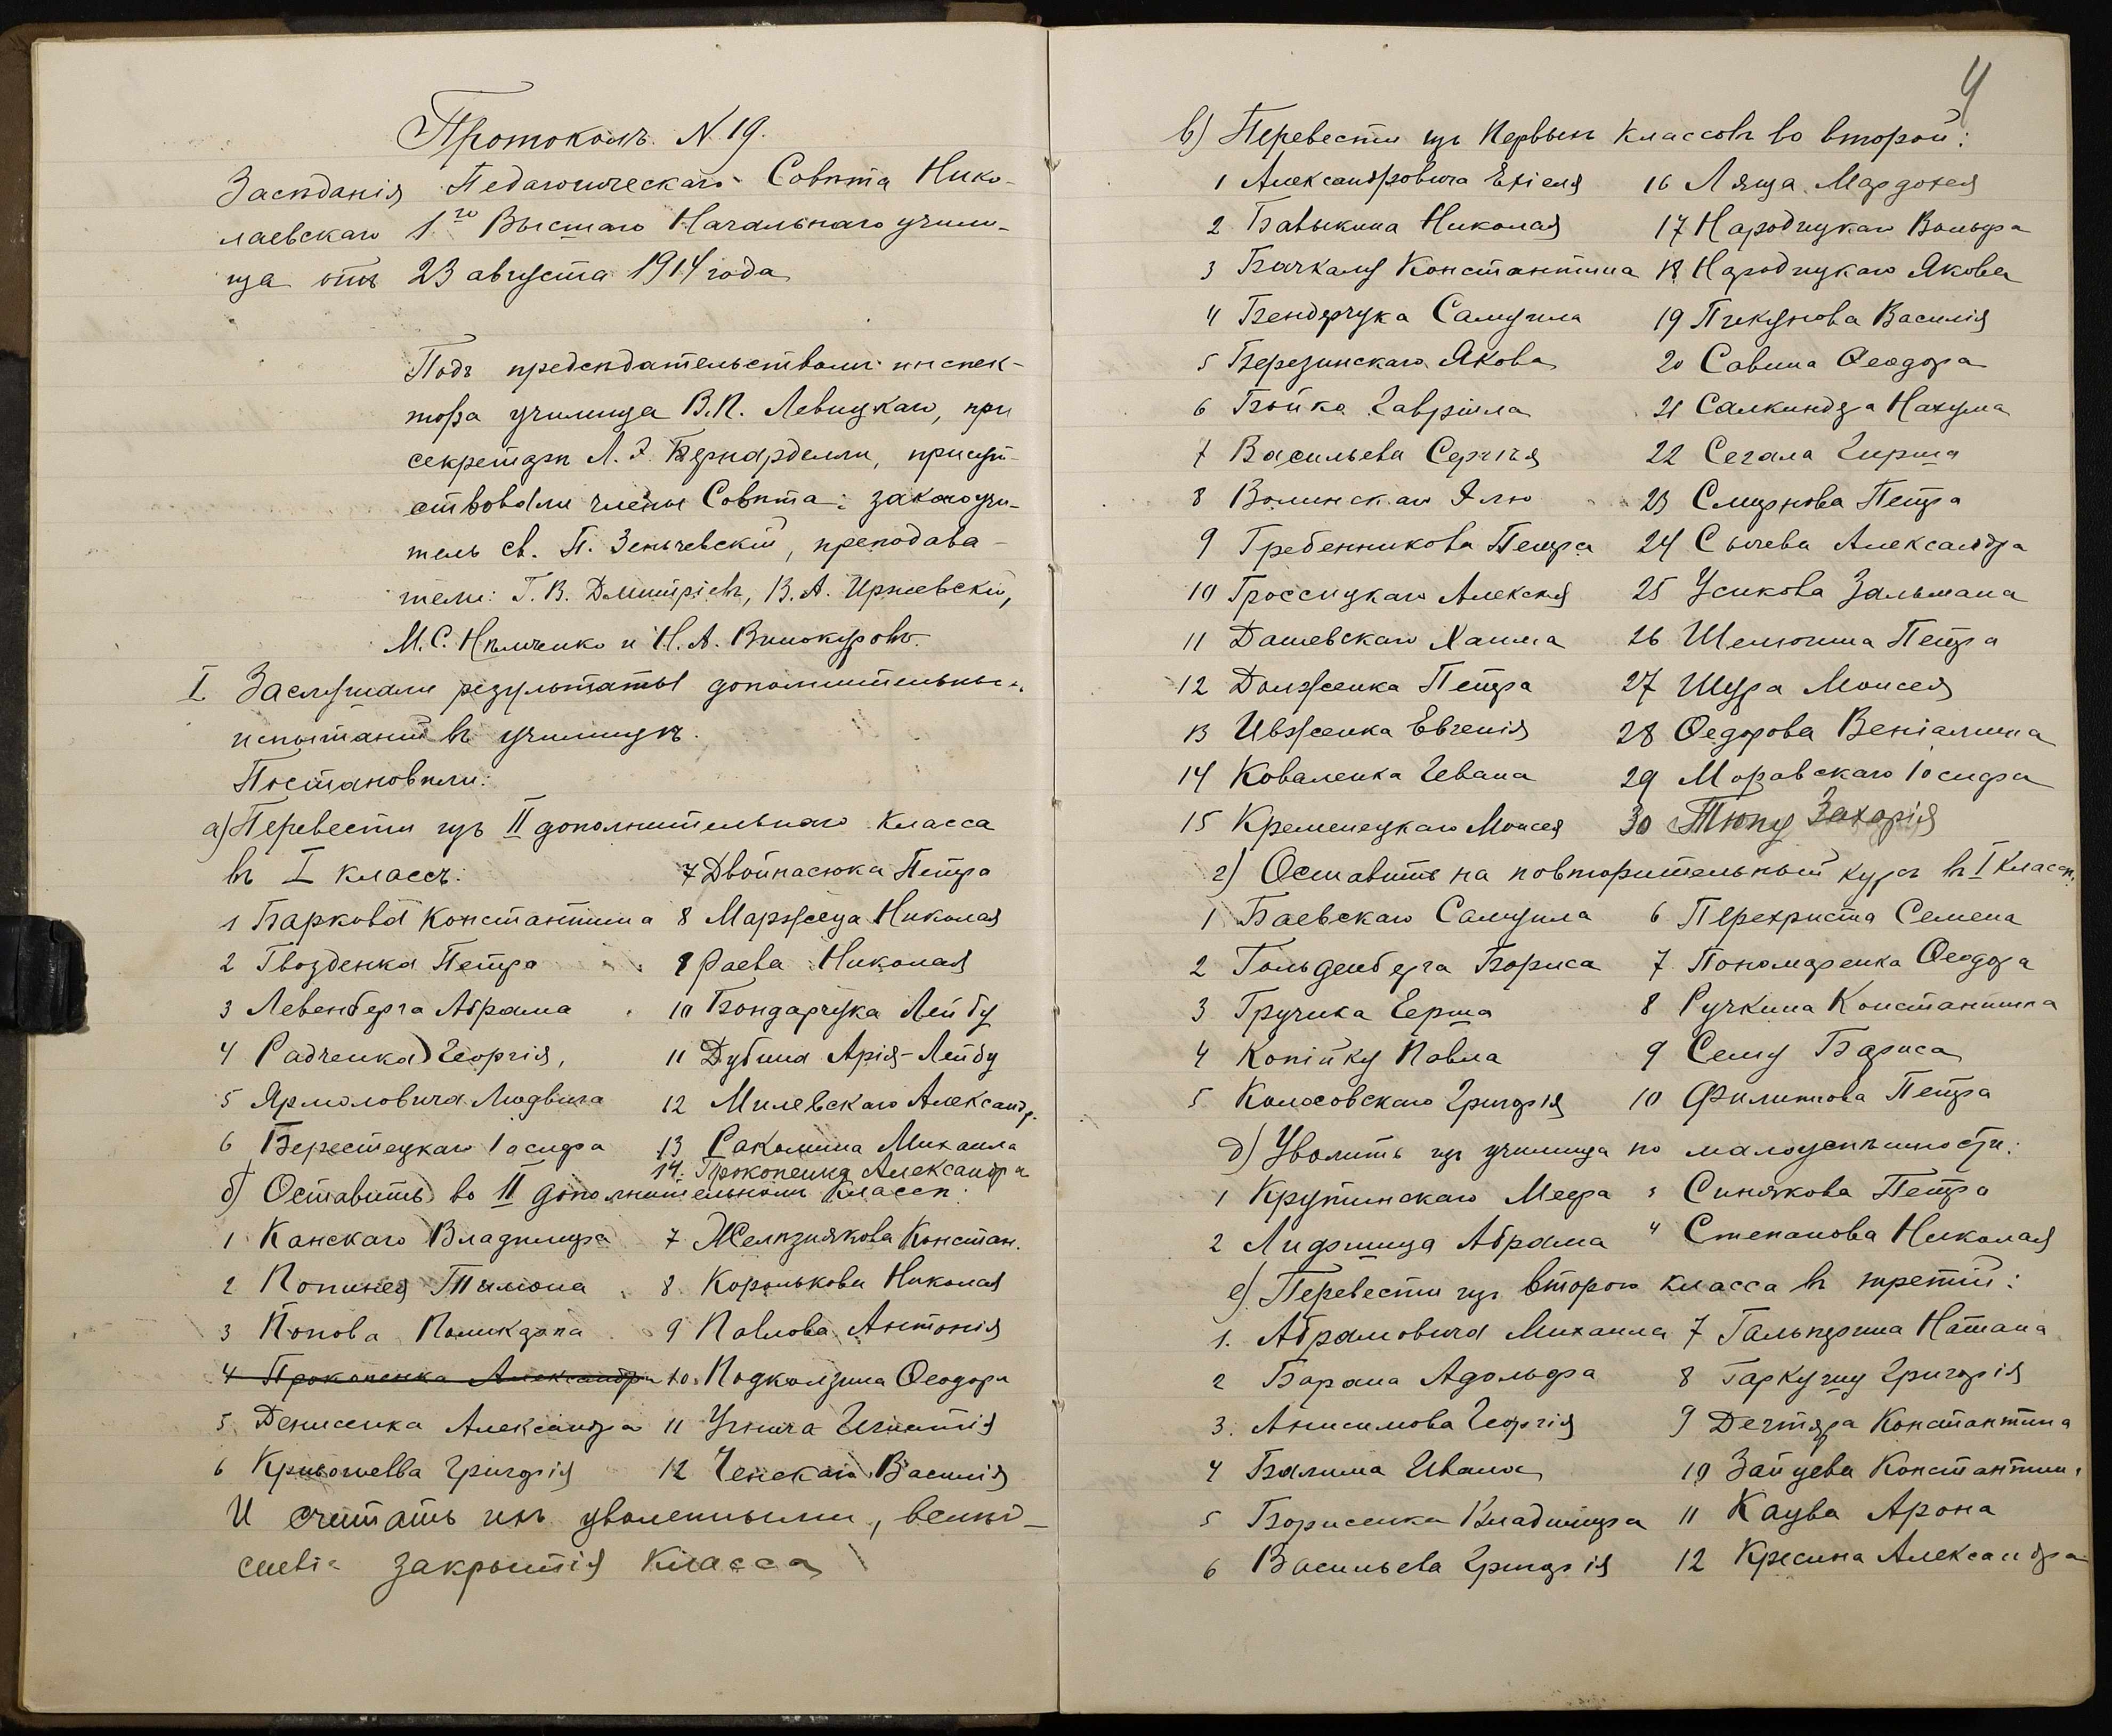 Протоколъ N. 19.
Засѣданія Педагогическаго Совѣта Нико-
лаевскаго 1го Высшаго Начальнаго учили-
ща отъ 23 августа 1914 года
Подъ предсѣдательствомъ инспек-
тора училища В.П. Левицкаго, при
секретарѣ Л. Э. Бернарделли, присут-
ствовали члены Совѣта: законоучи-
тель св. П. Зеньчевскій, преподава-
тели: Г. В. Дмитріевъ, В. А. Иржевскій,
М. С. Нѣмченко и Н. А. Винокуровъ.
I Заслушали результаты дополнительныхъ
испытаній въ училищѣ.
Постановили:
а) Перевести изъ II дополнительнаго класса
въ I классъ:
1 Баркова Константина
2 Гвозденка Петра
3 Левенберга Абрама
4 Радченка Георгія,
5 Ярмоловича Людвига
6 Берестецкаго Іосифа
7 Двойнасюка Петра
8 Маржеца Николая
9 Раева Николая
10 Бондарчука Лейбу
11 Дубина Арія-Лейбу
12 Милевскаго Александр.
13 Ракомина Михаила
14. Прокопенка Александра
б) Оставить во II дополнительномъ классѣ:
1 Канскаго Владимира
2 Попинея Тимона
3 Попова Поликарпа
4 Прокопенка Александра
5 Денисенка Александра
6 Кривошеева Григорія
7 Желѣзнякова Констан.
8 Королькова Николая
9 Павлова Антонія
10. Подколзина Ѳеодора
11 Угнича Игнатія
12 Ченскаго Василія
И считать ихъ уволенными, вслѣд-
ствіе закрытія класса
4
в) Перевести изъ первыхъ классовъ во второй:
1 Александровича Ехіеля
2 Бавыкина Николая
3 Бачкалу Константина
4 Бендерчука Самуила
5 Березинскаго Якова
6 Бойко Гавріила
7 Васильева Сергѣя
8 Волинскаго Элю
9 Гребенникова Петра
10 Гроссицкаго Алексѣя
11 Дашевскаго Хаима
12 Долженка Петра
13 Ивженка Евгенія
14 Коваленка Ивана
15 Кременецкаго Моисея
16 Ляща Мардохея
17 Народицкаго Вольфа
18 Народицкаго Якова
19 Пикунова Василія
20 Савина Ѳеодора
21 Салкиндера Нахума
22 Сегала Гирша
23 Смирнова Петра
24 Сычева Александра
25 Усикова Зальмана
26 Шелюгина Петра
27 Шура Моисея
28 Ѳедорова Веніамина
29 Моравскаго Іосифа
30 Тюпу Захарія
г) Оставить на повторительный курсъ въ I классѣ.
1 Баевскаго Самуила
2 Гольденберга Бориса
3 Гручика Герша
4 Копійку Павла
5 Колосовскаго Григорія
6 Перехриста Семена
7 Пономаренка Ѳеодора
8 Ручкина Константина
9 Сему Бориса
10 Филиппова Петра
д) Уволить изъ училища по малоуспѣшности:
1 Крутинскаго Меера
2 Лифшица Абрама
3 Синякова Петра
4 Степанова Николая
е) Перевести изъ второго класса въ третій:
1. Абрамовича Михаила
2 Барана Адольфа
3. Анисимова Георгія
4 Балима Ивана
5 Борисенка Владимира
6 Васильева Григорія
7 Гальперина Натана
8 Гаркушу Григорія
9 Дегтяра Константина
10 Зайцева Константина
11 Кацва Арона
12 Кресина Александра